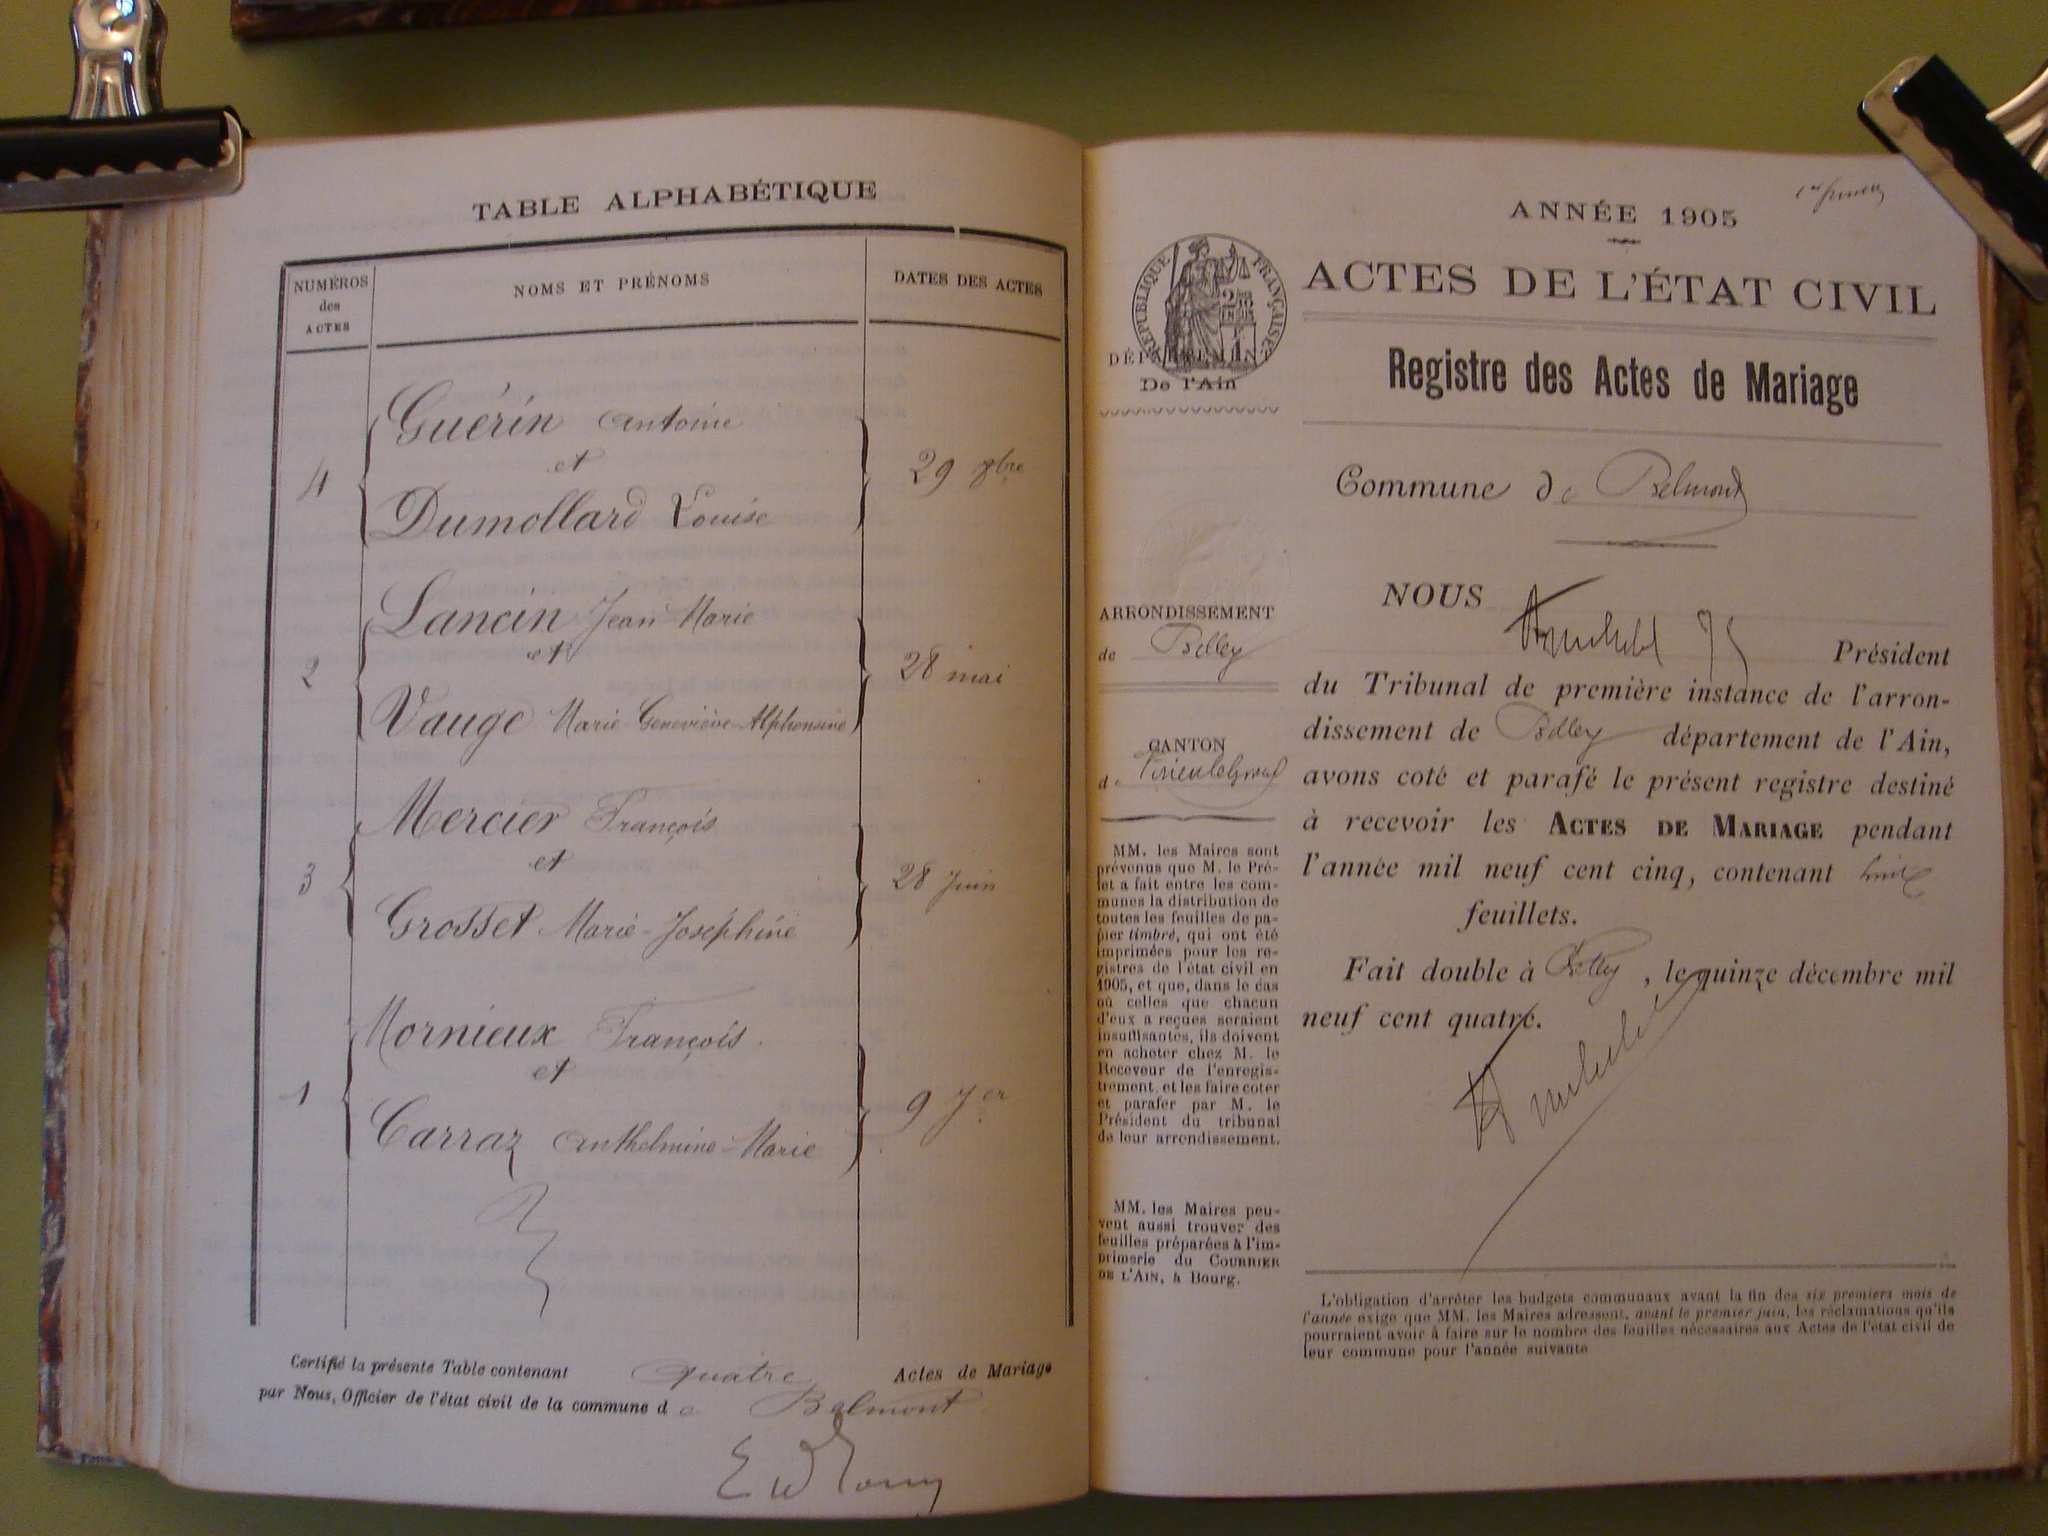 TABLE ALPHABÉTIQUE
NUMÉROS
des
ACTES
NOMS ET PRÉNOMS
DATES DES ACTES
Guérin Antoine
et
4
29 8bre
Dumollard Louise
Lancin Jean-Marie
et
2
28 mai
Vauge Marie-Geneviève-Alphonsine
Mercier François
et
3
28 Juin
Grosset Marie-Joséphine
Mornieux François
et
1
9 Jer
Carraz Anthelmine-Marie
Certifié la présente Table contenant quatre Actes de Mariage
par Nous, Officier de l'état civil de la commune de Belmont
ANNÉE 1905
RÉPUBLIQUE FRANÇAISE
DÉPARTEMENT
De l'Ain
ACTES DE L'ÉTAT CIVIL
Registre des Actes de Mariage
Commune de Belmont
ARRONDISSEMENT
de Belley
CANTON
de
MM. les Maires sont
prévenus que M. le Pré-
fet a fait entre les com-
munes la distribution de
toutes les feuilles de pa-
pier timbré, qui ont été
imprimées pour les re-
gistres de l'état civil en
1905, et que, dans le cas
où celles que chacun
d'eux a reçues seraient
insuffisantes, ils doivent
en acheter chez M. le
Receveur de l'enregis-
trement, et les faire coter
et parafer par M. le
Président du tribunal
de leur arrondissement.
MM. les Maires peu-
vent aussi trouver des
feuilles préparées à l'im-
primerie du COURRIER
DE L'AIN, à Bourg.
NOUS
Président
du Tribunal de première instance de l'arron-
dissement de Belley département de l'Ain,
avons coté et parafé le présent registre destiné
à recevoir les ACTES DE MARIAGE pendant
l'année mil neuf cent cinq, contenant
feuillets.
Fait double à Belley, le quinze décembre mil
neuf cent quatre.
L'obligation d'arrêter les budgets communaux avant la fin des six premiers mois de
l'année exige que MM. les Maires adressent, avant le premier juin, les réclamations qu'ils
pourraient avoir à faire sur le nombre des feuilles nécessaires aux Actes de l'état civil de
leur commune pour l'année suivante